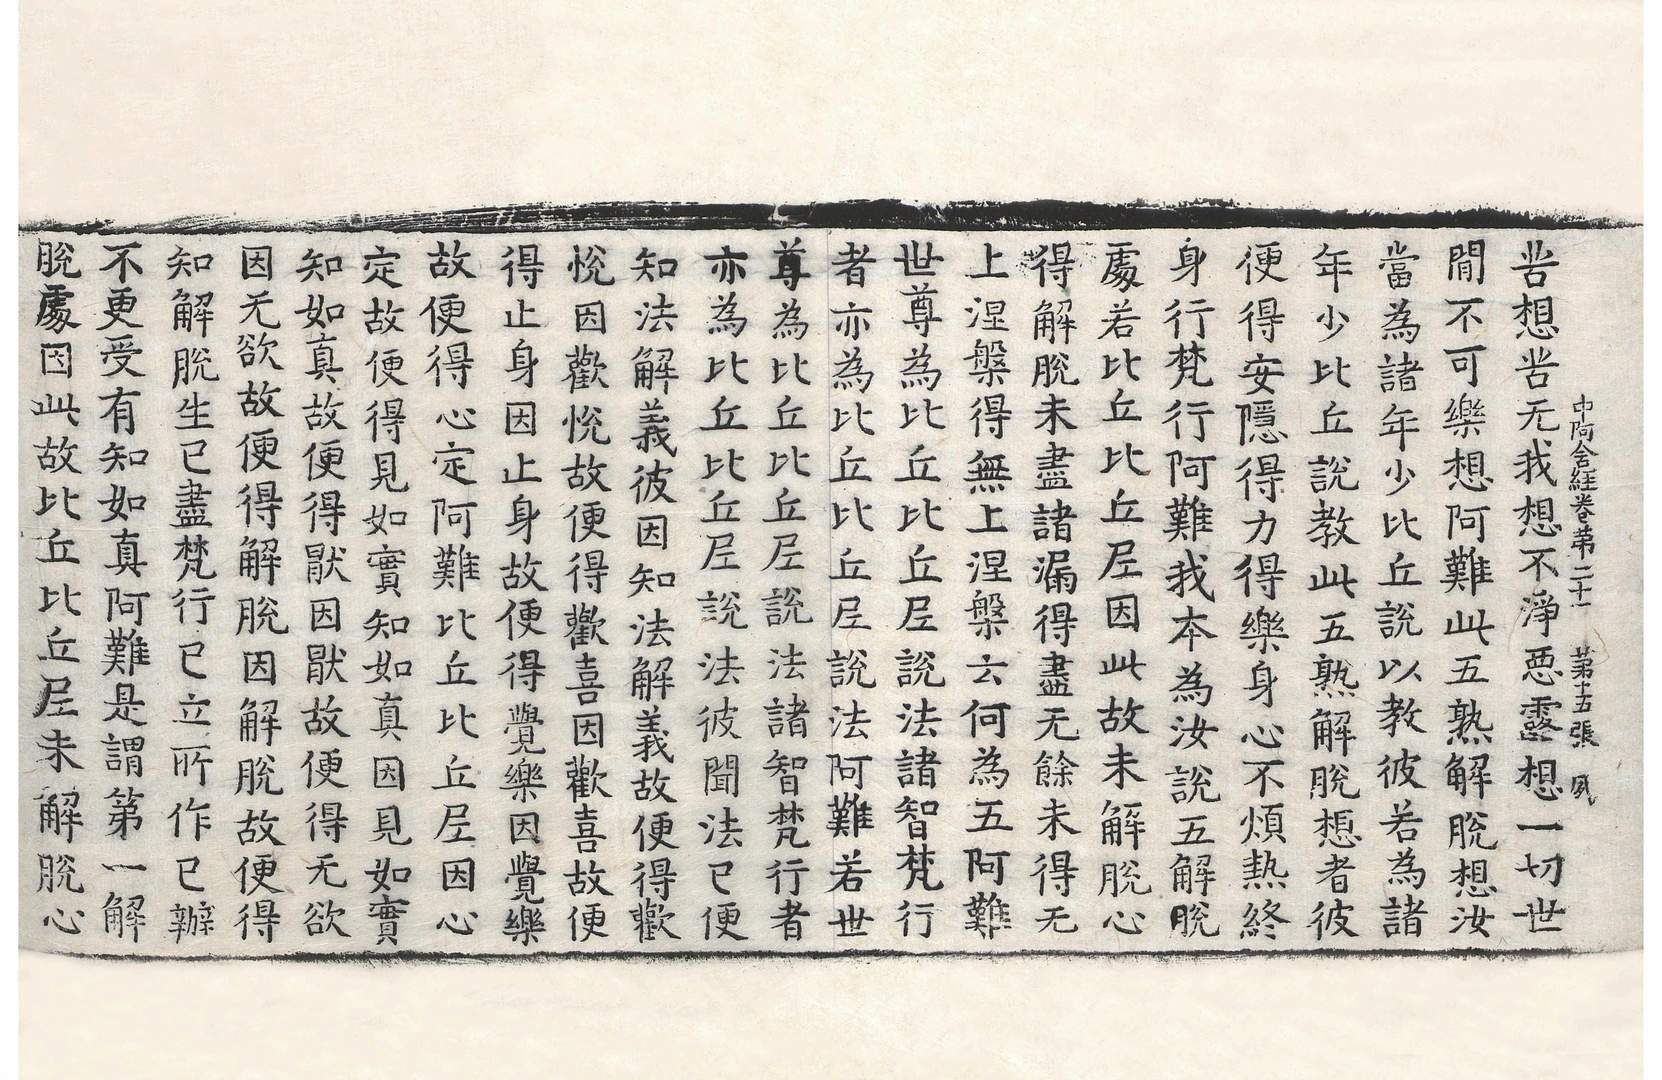 中阿含經卷第二十一 第十五張 夙
苦想苦无我想不淨惡露想一切世
閒不可樂想阿難此五熟解脫想汝
當為諸年少比丘說以教彼若為諸
年少比丘說教此五熟解脫想者彼
便得安隱得力得樂身心不煩熱終
身行梵行阿難我本為汝說五解脫
處若比丘比丘尼因此故未解脫心
得解脫未盡諸漏得盡无餘未得无
上涅槃得無上涅槃云何為五阿難
世尊為比丘比丘尼說法諸智梵行
者亦為比丘比丘尼說法阿難若世
尊為比丘比丘尼說法諸智梵行者
亦為比丘比丘尼說法彼聞法已便
知法解義彼因知法解義故便得歡
悅因歡悅故便得歡喜因歡喜故便
得止身因止身故便得覺樂因覺樂
故便得心定阿難比丘比丘尼因心
定故便得見如實知如真因見如實
知如真故便得猒因猒故便得无欲
因无欲故便得解脫因解脫故便得
知解脫生已盡梵行已立所作已辦
不更受有知如真阿難是謂第一解
脫處因此故比丘比丘尼未解脫心